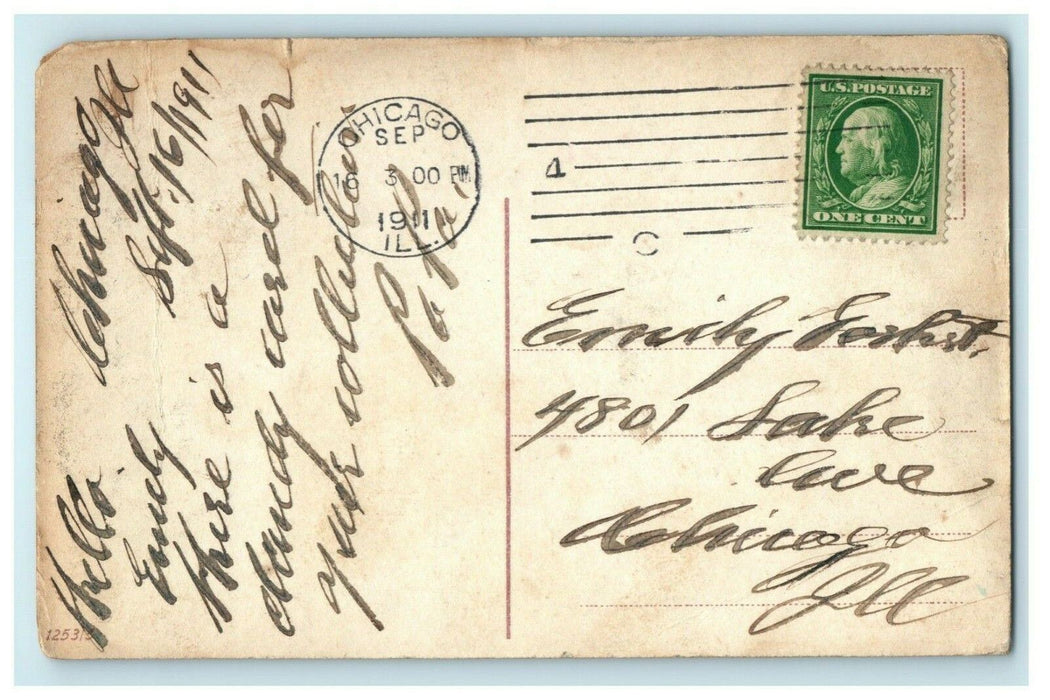 Chicago Ill
Sept. 16/1911
Hello
Emily
there is a
dandy card for
your collection
Papa.
CHICAGO
SEP
16 3 00 PM
1911
ILL.
4
C
U.S. POSTAGE
ONE CENT
Emily
4801 Lake
Ave
Chicago
Ill